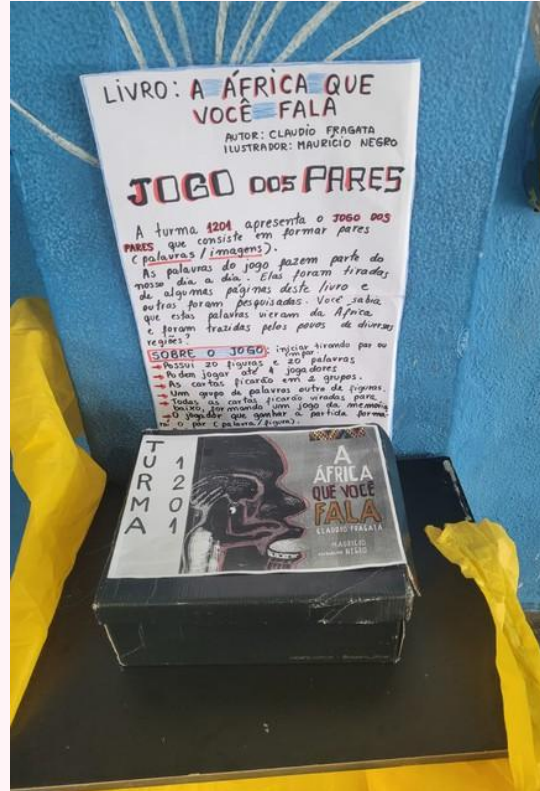 LIVRO: A ÁFRICA QUE
VOCÊ FALA
AUTOR: CLAUDIO FRAGATA
ILUSTRADOR: MAURÍCIO NEGRO
JOGO DOS PARES
A turma 1201 apresenta o JOGO DOS
PARES que consiste em formar pares
(palavras / imagens).
As palavras do jogo fazem parte do
nosso dia a dia. Elas foram tiradas
de algumas páginas deste livro e
outras foram pesquisadas. Você sabia
que estas palavras vieram da África
e foram trazidas pelos povos de diversas
regiões?
SOBRE O JOGO: iniciar tirando par ou
ímpar.
→ Possui 20 figuras e 20 palavras
→ Podem jogar até 4 jogadores
→ As cartas ficarão em 2 grupos.
Um grupo de palavras outro de figuras.
→ Todas as cartas ficarão viradas para
baixo, formando um jogo da memória
→ O jogador que ganhar a partida forma-
rá o par (palavra/figura).
TURMA
1201
A
ÁFRICA
QUE VOCÊ
FALA
CLAUDIO FRAGATA
MAURICIO
NEGRO